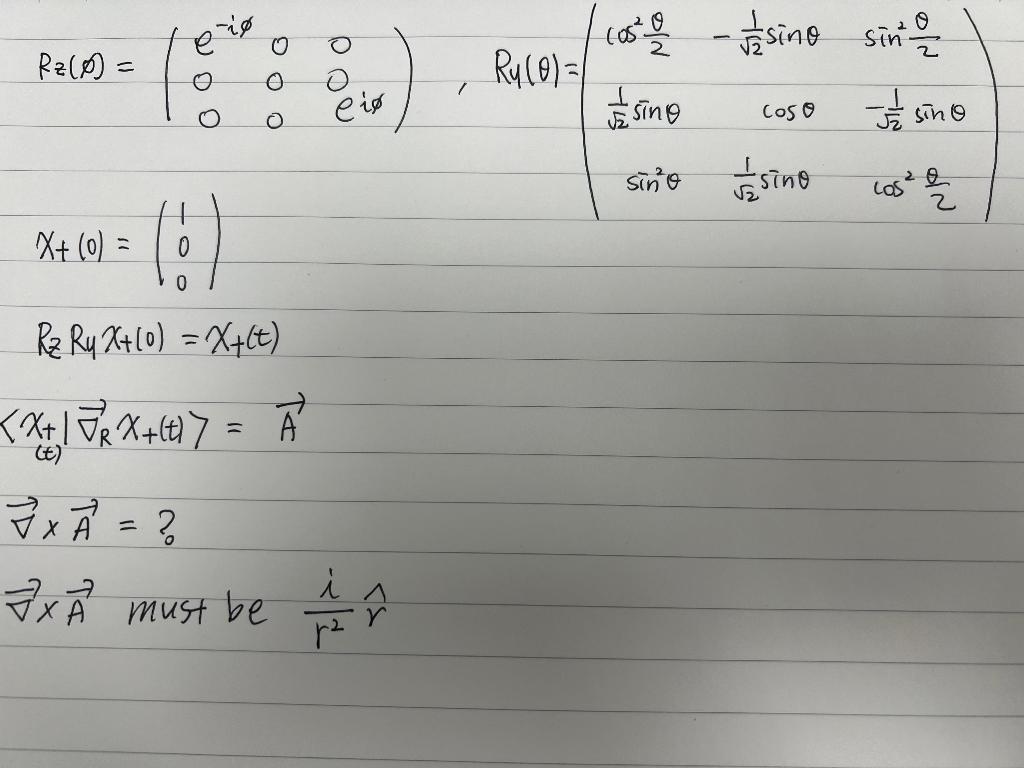 Rz(φ) = ( e^{-iφ} 0 0 ; 0 0 0 ; 0 0 e^{iφ} ) , Ry(θ) = ( cos² θ/2 -1/√2 sinθ sin² θ/2 ; 1/√2 sinθ cosθ -1/√2 sinθ ; sin²θ 1/√2 sinθ cos² θ/2 )
χ+(0) = ( 1 ; 0 ; 0 )
Rz Ry χ+(0) = χ+(t)
⟨χ+(t) | ∇⃗_R χ+(t)⟩ = A⃗
∇⃗ × A⃗ = ?
∇⃗ × A⃗ must be i/r² r̂